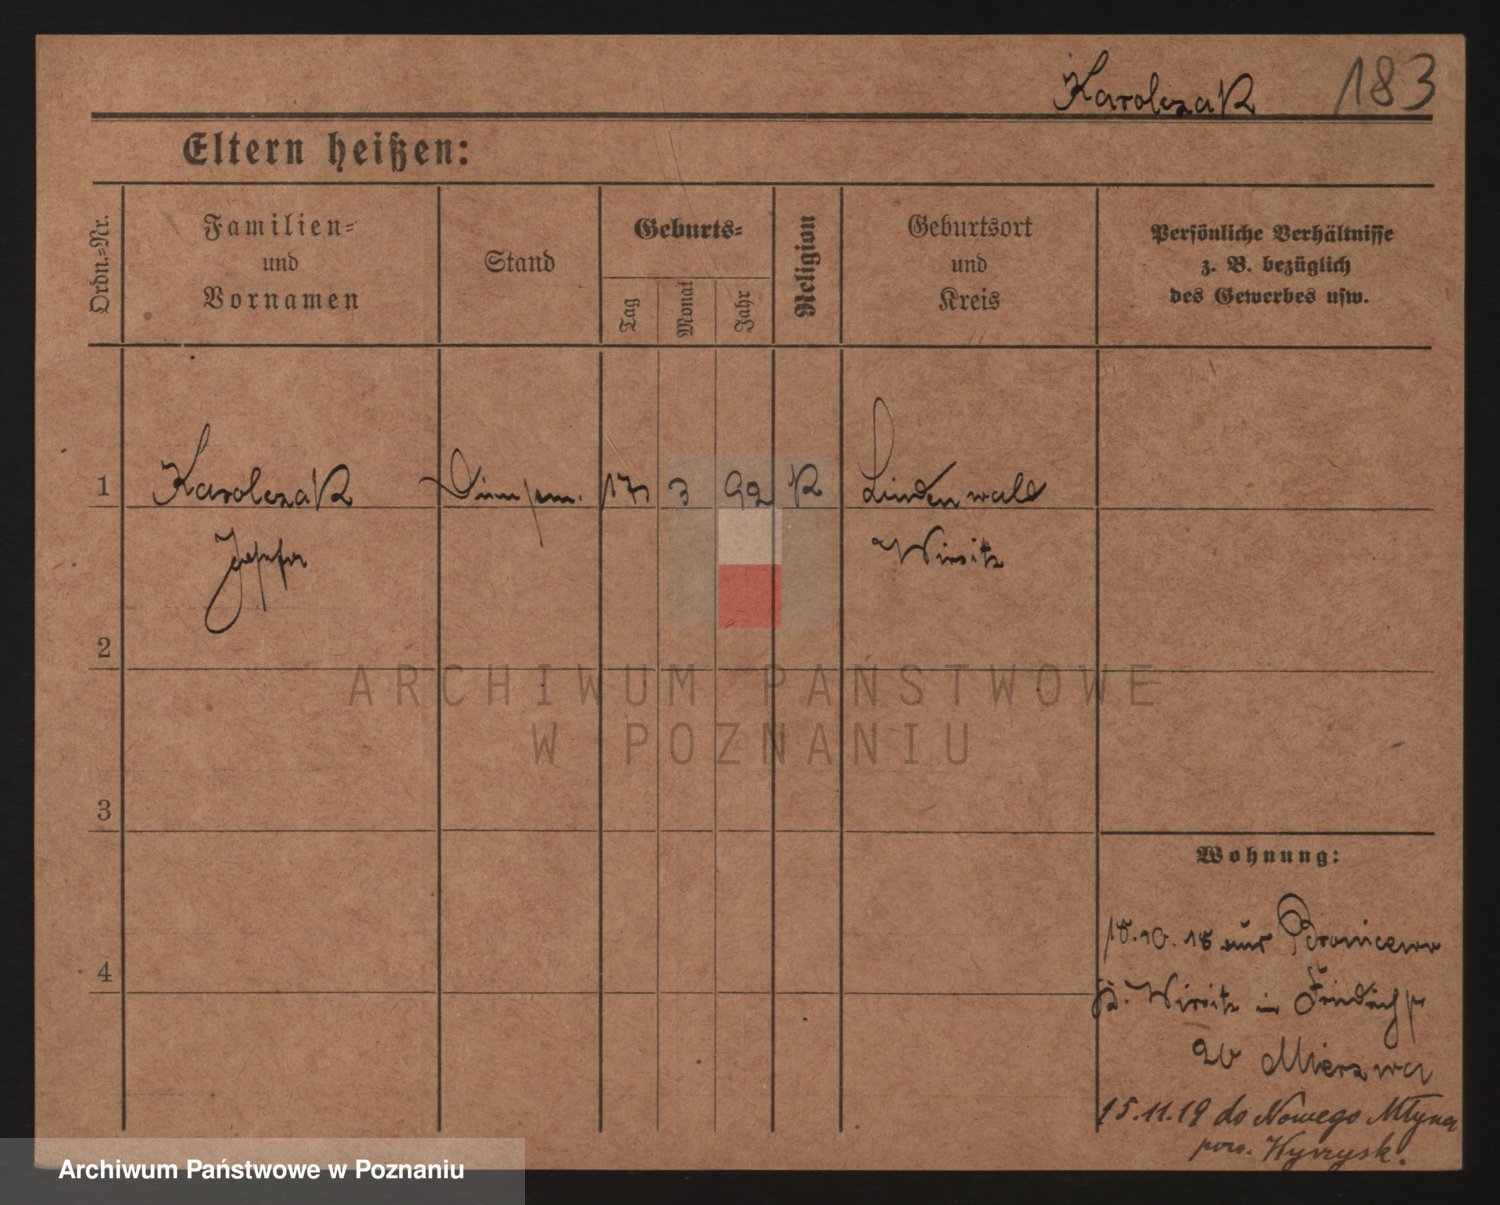 Karolczak 183
Eltern heißen:
Ordn.-Nr.
Familien-
und
Vornamen
Stand
Geburts-
Tag
Monat
Jahr
Religion
Geburtsort
und
Kreis
Persönliche Verhältnisse
z. B. bezüglich
des Gewerbes usw.
1 Karolczak 3 92 K Lindenwald
Wirsitz
2
ARCHIWUM PAŃSTWOWE
W POZNANIU
3
Wohnung:
18.10.18 aus
4
Wirsitz in
Mierzwa
15.11.19 do Nowego Młyna
pow. Wyrzysk.
Archiwum Państwowe w Poznaniu